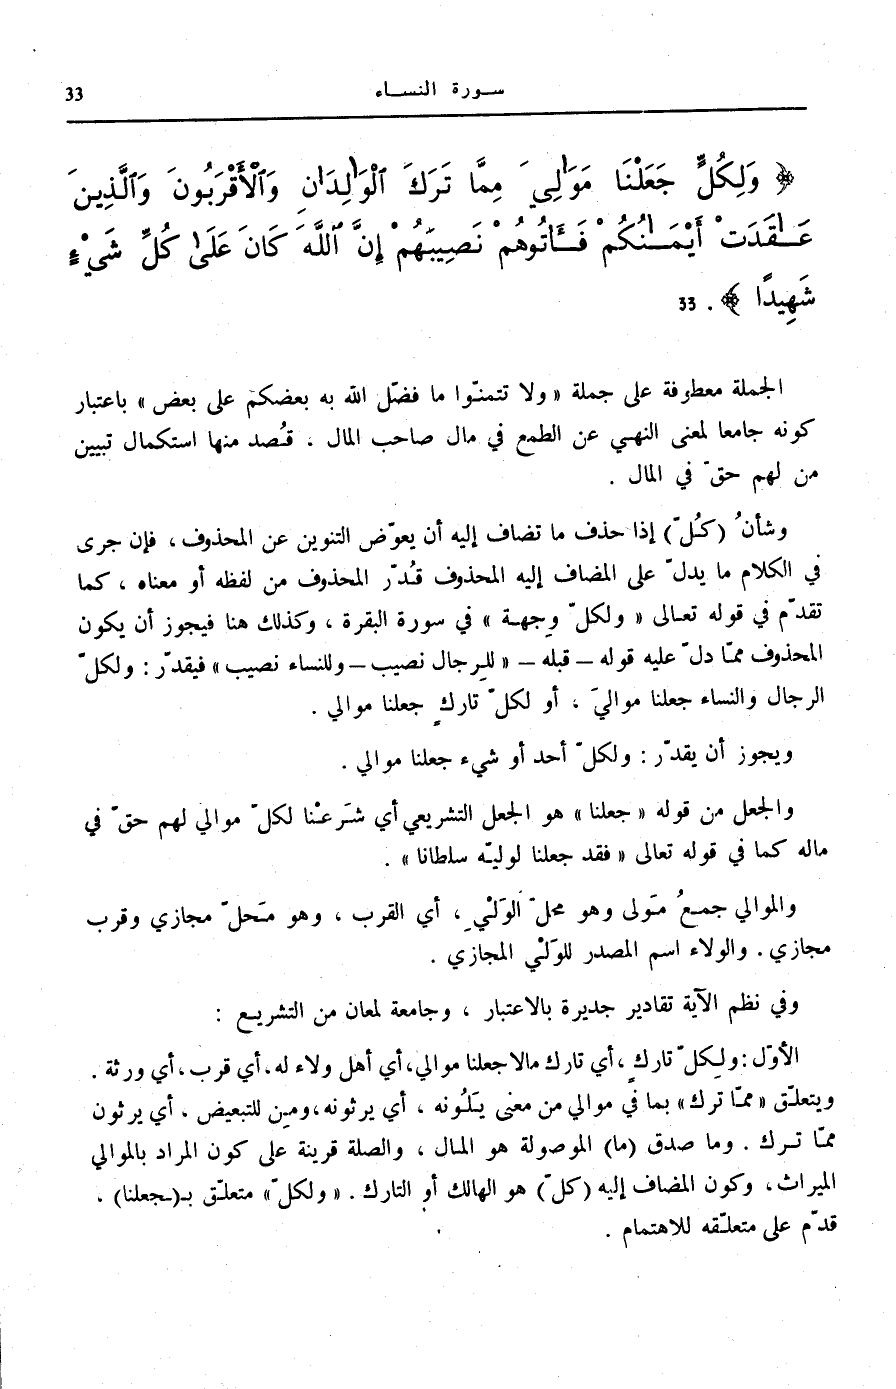 سورة النساء 33
﴿ وَلِكُلٍّ جَعَلْنَا مَوَٰلِيَ مِمَّا تَرَكَ ٱلْوَٰلِدَانِ وَٱلْأَقْرَبُونَ وَٱلَّذِينَ
عَـٰقَدَتْ أَيْمَـٰنُكُمْ فَـَٔاتُوهُمْ نَصِيبَهُمْ إِنَّ ٱللَّهَ كَانَ عَلَىٰ كُلِّ شَيْءٍ
شَهِيدًا ﴾ . 33
الجملة معطوفة على جملة « ولا تتمنّوا ما فضّل الله به بعضكم على بعض » باعتبار
كونه جامعا لمعنى النهي عن الطمع في مال صاحب المال . قُصد منها استكمال تبيين
من لهم حقّ في المال .
وشأنُ (كُلّ) إذا حذف ما تضاف إليه أن يعوّض التنوين عن المحذوف ، فإن جرى
في الكلام ما يدلّ على المضاف إليه المحذوف قُدّر المحذوف من لفظه أو معناه ، كما
تقدّم في قوله تعالى « ولكلّ وجهة » في سورة البقرة ، وكذلك هنا فيجوز أن يكون
المحذوف ممّا دلّ عليه قوله – قبله – « للرجال نصيب – وللنساء نصيب » فيقدّر : ولكلّ
الرجال والنساء جعلنا مواليَ ، أو لكلّ تاركٍ جعلنا موالي .
ويجوز أن يقدّر : ولكلّ أحد أو شيء جعلنا موالي .
والجعل من قوله « جعلنا » هو الجعل التشريعي أي شَرعْنا لكلّ موالي لهم حقّ في
ماله كما في قوله تعالى « فقد جعلنا لوليّه سلطانا » .
والموالي جمعُ مَولى وهو محلّ الوَلْيِ ، أي القرب ، وهو مَحلّ مجازي وقرب
مجازي . والولاء اسم المصدر للوَلْي المجازي .
وفي نظم الآية تقادير جديرة بالاعتبار ، وجامعة لمعان من التشريع :
الأوّل : ولكلّ تاركٍ ، أي تارك مالا جعلنا موالي ، أي أهل ولاء له ، أي قرب ، أي ورثة .
ويتعلّق « ممّا ترك » بما في موالي من معنى يَلُونه ، أي يرثونه ، ومِن للتبعيض . أي يرثون
ممّا ترك . وما صدق (ما) الموصولة هو المال ، والصلة قرينة على كون المراد بالموالي
الميراث ، وكون المضاف إليه (كلّ) هو الهالك أو التارك . « ولكلّ » متعلّق بـ(ـجعلنا) .
قدّم على متعلّقه للاهتمام .